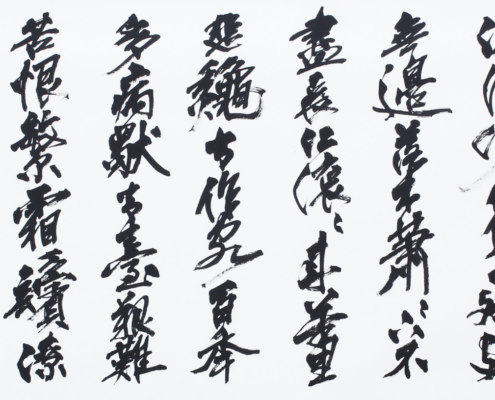 無邊落木蕭〻下不
盡長江滾〻来萬里
悲龝常作客百年
多病獨登臺艱難
苦恨繁霜鬢潦